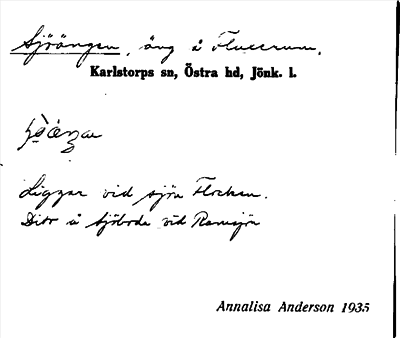 Sjöängen, äng å Fluserum,
Karlstorps sn, Östra hd, Jönk. l.
Ligger vid sjön Flocken.
Dito å Sjöboda vid Ramsjön
Annalisa Anderson 1935